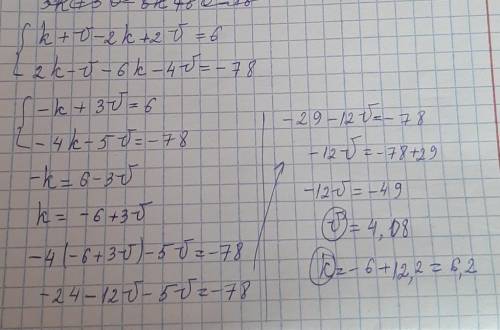 k+v-2k+2v=6
2k-v-6k-4v=-78
-k+3v=6
-4k-5v=-78
-k=6-3v
k=-6+3v
-4(-6+3v)-5v=-78
-24-12v-5v=-78
-29-12v=-78
-12v=-78+29
-12v=-49
v=4,08
k=-6+12,2=6,2